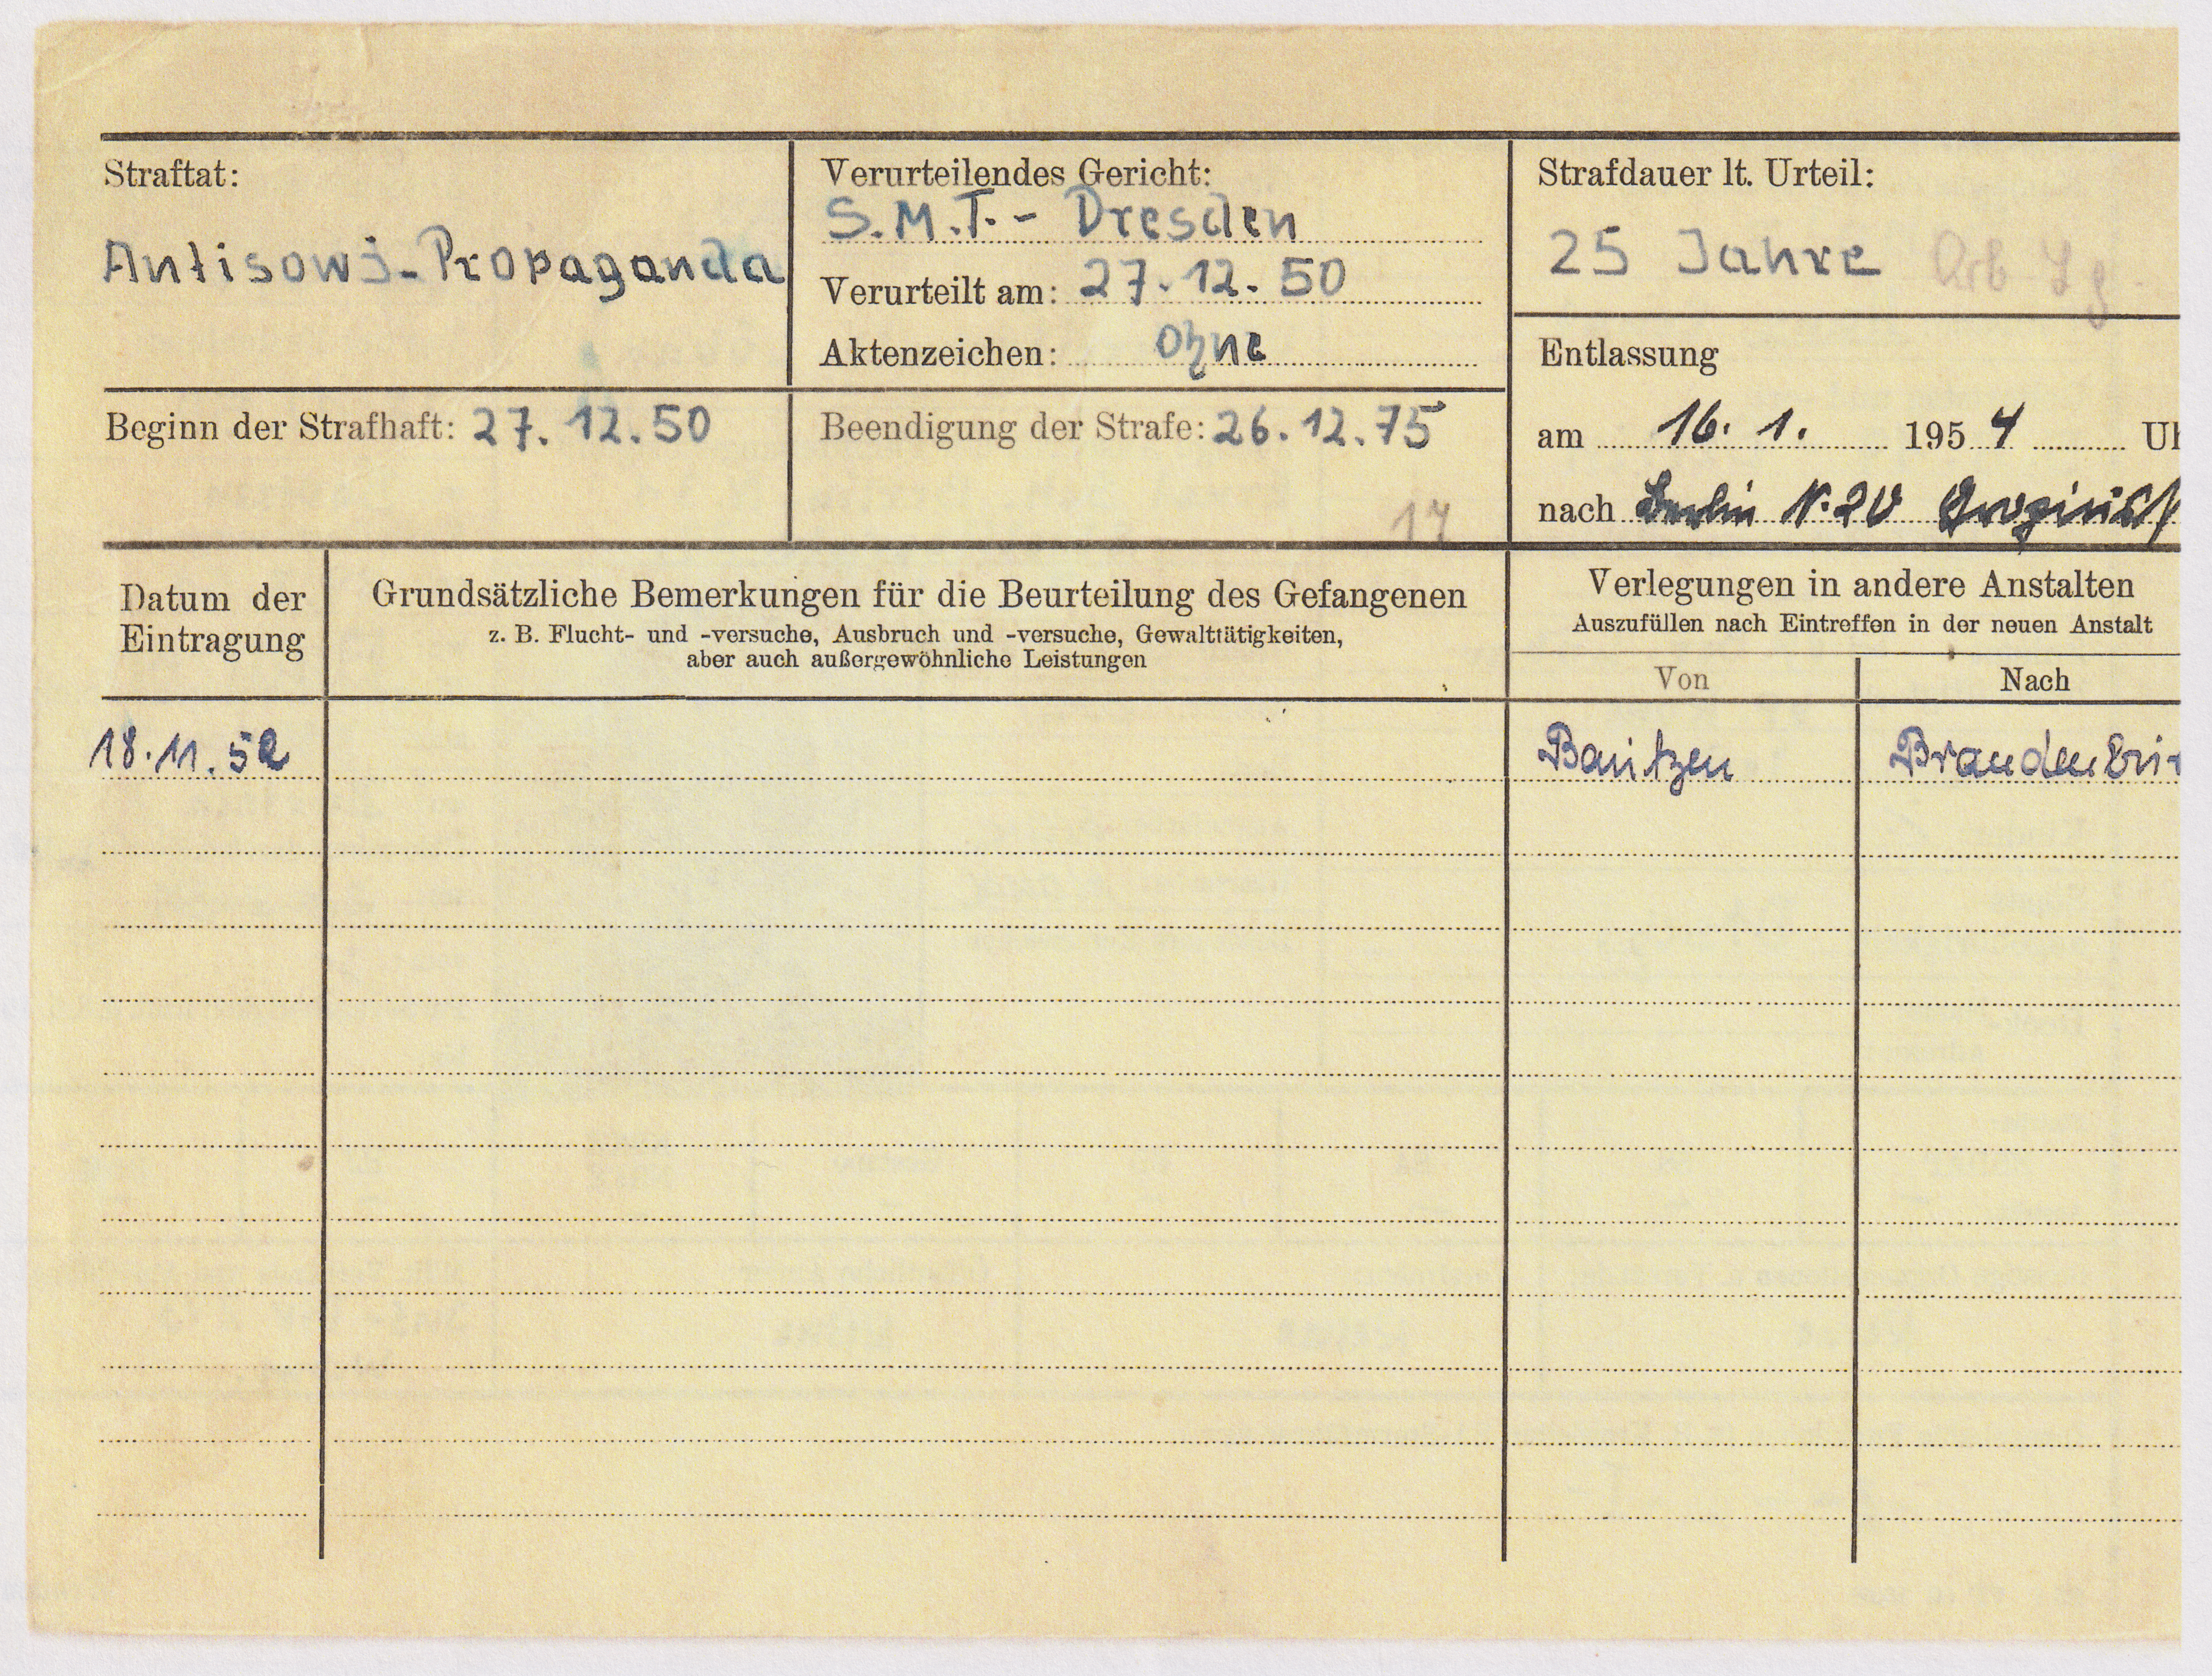 Straftat:
Antisowj-Propaganda
Verurteilendes Gericht:
S.M.T. - Dresden
Verurteilt am: 27.12.50
Aktenzeichen: Ohne
Strafdauer lt. Urteil:
25 Jahre Arb Lg.
Entlassung
am 16. 1. 1954 Uh
nach Berlin N.20
Beginn der Strafhaft: 27.12.50
Beendigung der Strafe: 26.12.75
17
Datum der
Eintragung
Grundsätzliche Bemerkungen für die Beurteilung des Gefangenen
z. B. Flucht- und -versuche, Ausbruch und -versuche, Gewalttätigkeiten,
aber auch außergewöhnliche Leistungen
Verlegungen in andere Anstalten
Auszufüllen nach Eintreffen in der neuen Anstalt
Von Nach
18.11.52 Bautzen Brandenbur